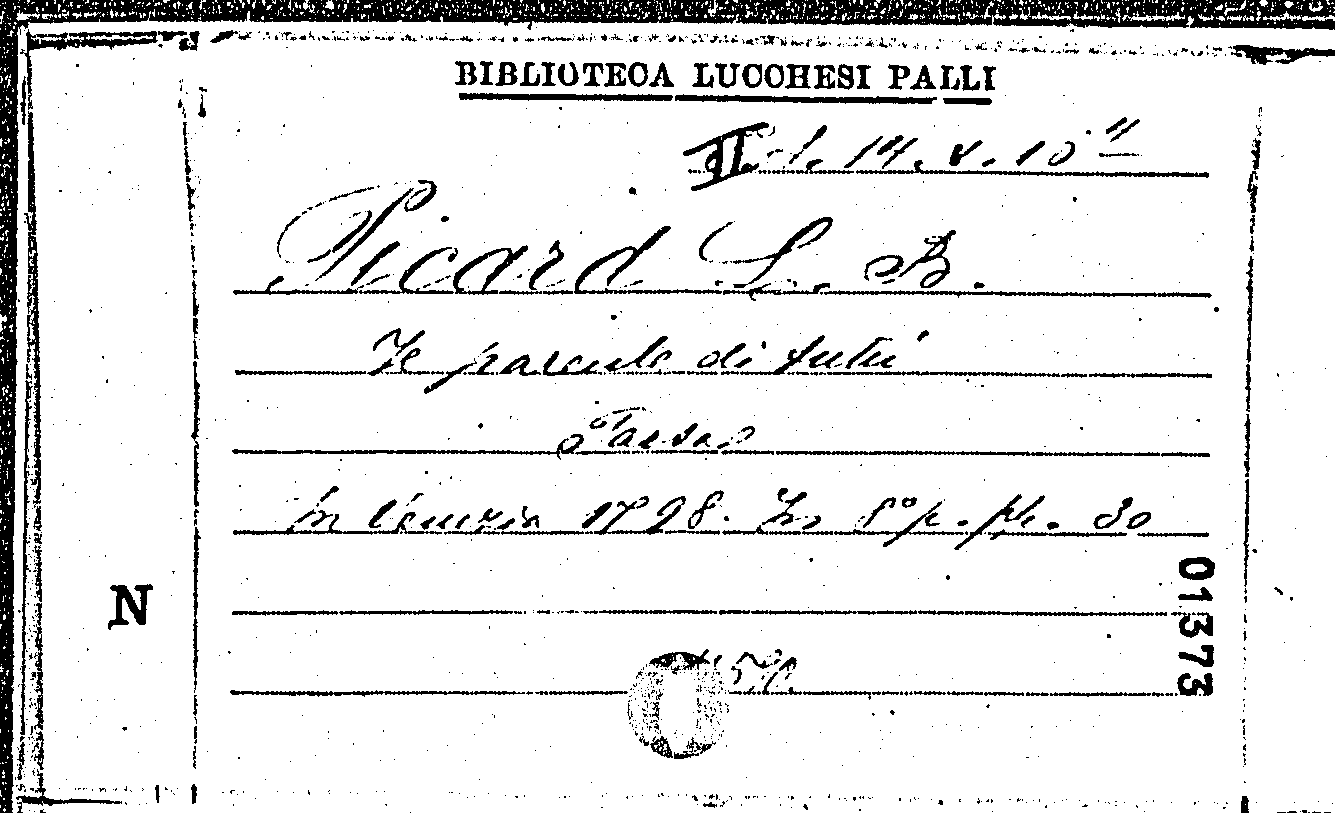 BIBLIOTECA LUCCHESI PALLI
II. 14. V. 10 4
Picard L. B.
Il parente di tutti
Farsa
In Venezia 1798. In 8° p. pl. 30
N
01373